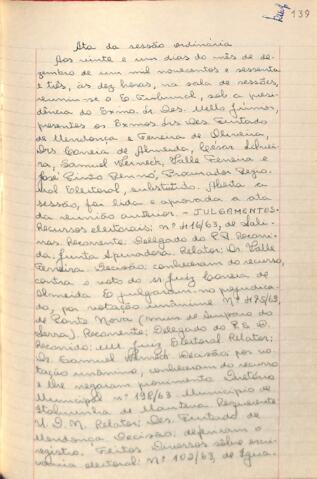 139
Ata da sessão ordinária
Aos vinte e um dias do mês de de-
zembro de um mil novecentos e sessenta
e três, às dez horas, na sala de sessões,
reuniu-se o E. Tribunal, sob a presi-
dência do Exmo. Sr. Des. Mello Júnior,
presentes os Exmos. Srs. Des. Furtado
de Mendonça e Ferreira de Oliveira,
Drs. Correia de Almeida, César Silvei-
ra, Samuel Werneck, Valle Ferreira e
José Pinto Renno, Procurador Regio-
nal Eleitoral, substituto. Aberta a
sessão, foi lida e aprovada a ata
da reunião anterior. - JULGAMENTOS.
Recursos eleitorais: nº 416/63, de Sali-
nas. Recorrente: Delegado do P.R. Recorri-
da: Junta Apuradora. Relator: Dr. Valle
Ferreira. Decisão: conheceram do recurso,
contra o voto do sr. juiz Correia de
Almeida. E julgaram-no prejudica-
do, por votação unânime. Nº 425/63,
de Ponte Nova (mun. de
Serra). Recorrente: Delegado do P.S.D.
Recorrido: MM. Juiz Eleitoral. Relator:
Dr. Samuel Werneck. Decisão: por vo-
tação unânime, conheceram do recurso
e lhe negaram provimento. Diretório
Municipal nº 198/63. Município de
Itabirinha de Mantena. Requerente:
U.D.N. Relator: Des. Furtado de
Mendonça. Decisão: deferiram o
registro. Feitos Diversos sôbre
eleitoral: Nº 102/63, de Igua-